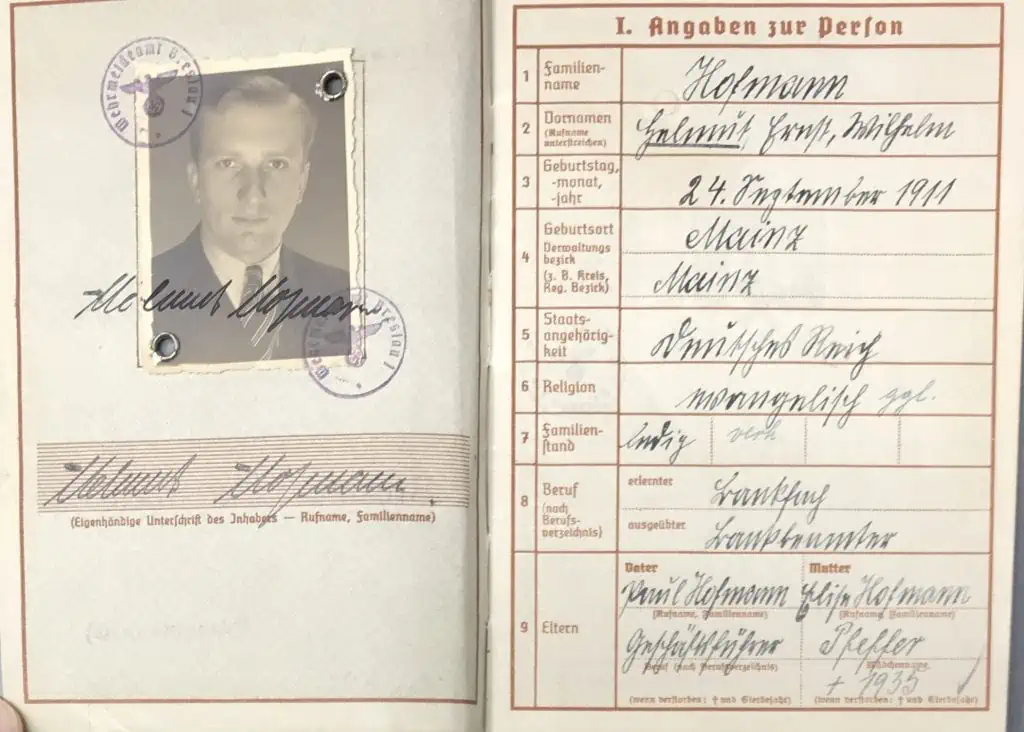 Wehrmeldeamt Breslau 1
Helmut Hofmann
Breslau 1
Helmut Hofmann
(Eigenhändige Unterschrift des Inhabers — Rufname, Familienname)
I. Angaben zur Person
1 Familien-
name
Hofmann
2 Vornamen
(Rufname
unterstreichen)
Helmut, Ernst, Wilhelm
3 Geburtstag,
-monat,
-jahr
24. September 1911
4 Geburtsort
Verwaltungs
bezirk
(z. B. Kreis,
Reg. Bezirk)
Mainz
Mainz
5 Staats-
angehörig-
keit
Deutsches Reich
6 Religion
evangelisch ggl.
7 Familien-
stand
ledig verh
8 Beruf
(nach
Berufs-
verzeichnis)
erlernter Bankfach
ausgeübter Bankbeamter
9 Eltern
Vater Mutter
Paul Hofmann Elise Hofmann
(Rufname, Familienname) (Rufname, Familienname)
Geschäftsführer Pfeffer
Beruf (nach Berufsverzeichnis) Mädchenname
+ 1935
(wenn verstorben: † und Sterbejahr) (wenn verstorben: † und Sterbejahr)